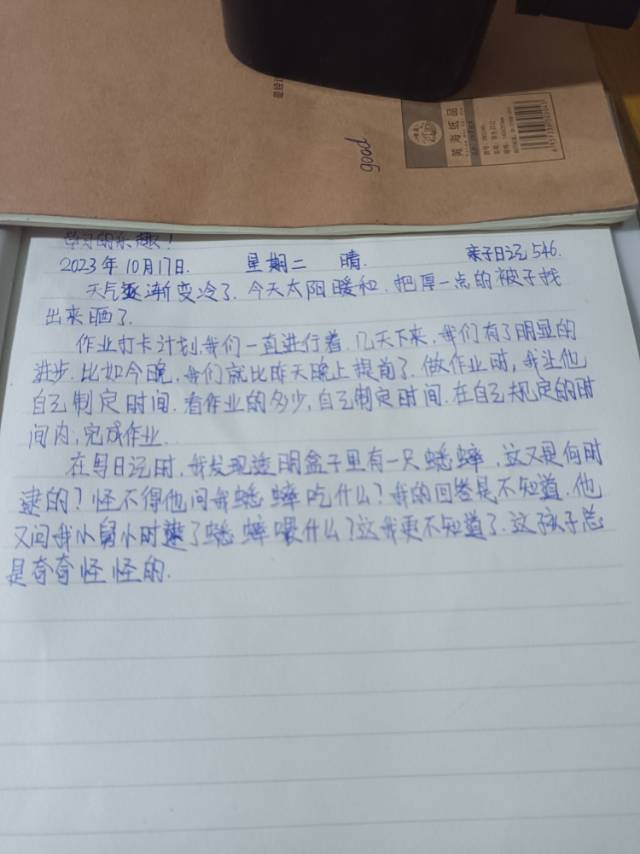 good
黄海纸品
学习的乐趣！
2023年10月17日. 星期二 晴. 亲子日记546.
天气逐渐变冷了.今天太阳暖和.把厚一点的被子找
出来晒了.
作业打卡计划我们一直进行着.几天下来,我们有了明显的
进步.比如今晚,我们就比昨天晚上提前了.做作业时,我让他
自己制定时间.看作业的多少,自己制定时间.在自己规定的时
间内,完成作业.
在写日记时,我发现透明盒子里有一只蟋蟀,这又是何时
逮的?怪不得他问我蟋蟀吃什么?我的回答是不知道.他
又问我小舅小时逮了蟋蟀喂什么?这我更不知道了.这孩子总
是奇奇怪怪的.